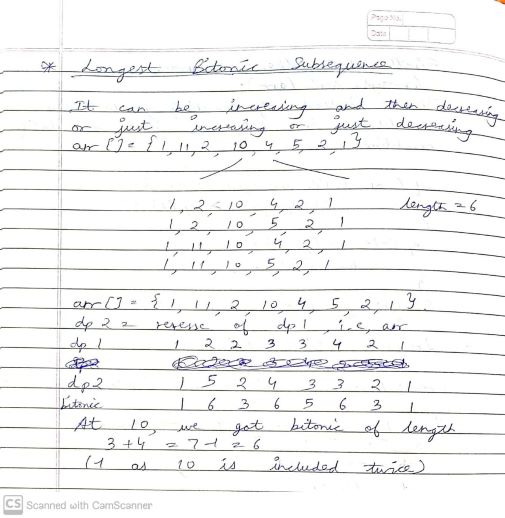 Page No.
Date
* Longest Bitonic Subsequence
It can be increasing and then decreasing
or just increasing or just decreasing
arr [] = { 1, 11, 2, 10, 4, 5, 2, 1 }
1, 2, 10, 4, 2, 1 length = 6
1, 2, 10, 5, 2, 1
1, 11, 10, 4, 2, 1
1, 11, 10, 5, 2, 1
arr [] = { 1, 11, 2, 10, 4, 5, 2, 1 }
dp 2 = reverse of dp 1, i.e, arr
dp 1 1 2 2 3 3 4 2 1
dp 2 1 5 2 4 3 3 2 1
bitonic 1 6 3 6 5 6 3 1
At 10, we got bitonic of length
3 + 4 = 7 - 1 = 6
(-1 as 10 is included twice)
CS Scanned with CamScanner